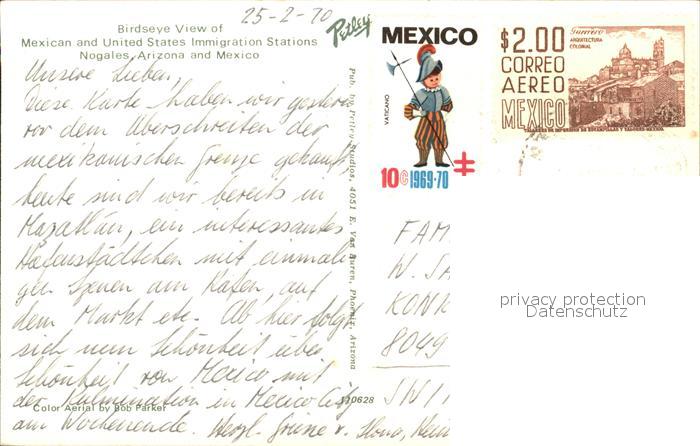 25-2-70
Birdseye View of
Mexican and United States Immigration Stations
Nogales, Arizona and Mexico
Petley
Unsere Lieben,
Diese Karte haben wir gestern
vor dem Überschreiten der
mexikanischen Grenze gekauft,
heute sind wir bereits in
Mazatlán, ein interessantes
Hafenstädtchen mit einmali-
gen Szenen am Hafen, auf
dem Markt etc. Ab hier folgt
sich nun Schönheit über
Schönheit von Mexico mit
der Kulmination in Mexico City
am Wochenende. Herzl. Grüsse v. Ilona,
Color Aerial by Bob Parker
Pub. by Petley Studios, 4051 E. Van Buren, Phoenix, Arizona
MEXICO
VATICANO
10c 1969-70
$2.00
Guerrero
ARQUITECTURA
COLONIAL
CORREO
AEREO
MEXICO
TALLERES DE IMPRESION DE ESTAMPILLAS Y VALORES-MEXICO
FAM
W. SA
KONK
8049
privacy protection
Datenschutz